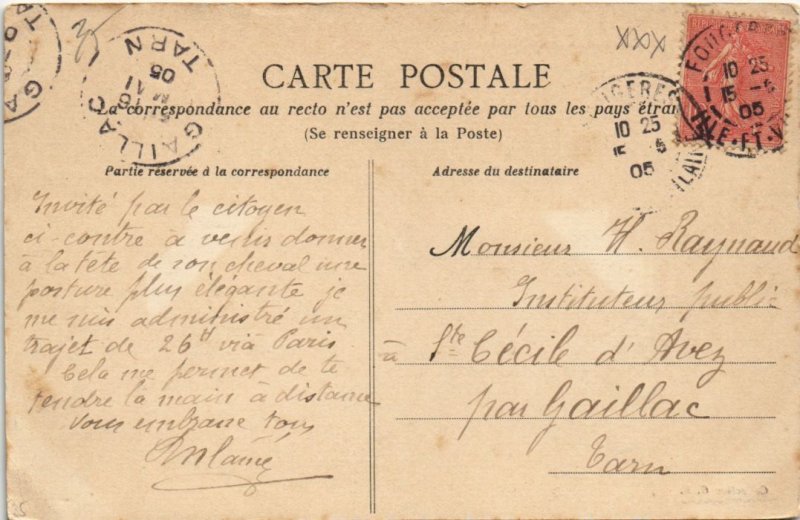 CARTE POSTALE
La correspondance au recto n'est pas acceptée par tous les pays étran
(Se renseigner à la Poste)
Partie réservée à la correspondance
Invité par le citoyen
ci-contre à venir donner
à la tête de son cheval une
posture plus élégante je
me suis administré un
trajet de 26 h via Paris
Cela me permet de te
tendre la main à distance
Vous embrasse tous
Adresse du destinataire
Monsieur H. Raynaud
Instituteur public
à Ste Cécile d'Avez
par Gaillac
Tarn
GAILLAC
TARN
05
FOUGERES
10 25
15 -6
05
ILLE-ET-V
UGERES
10 25
15 -6
05
XXX